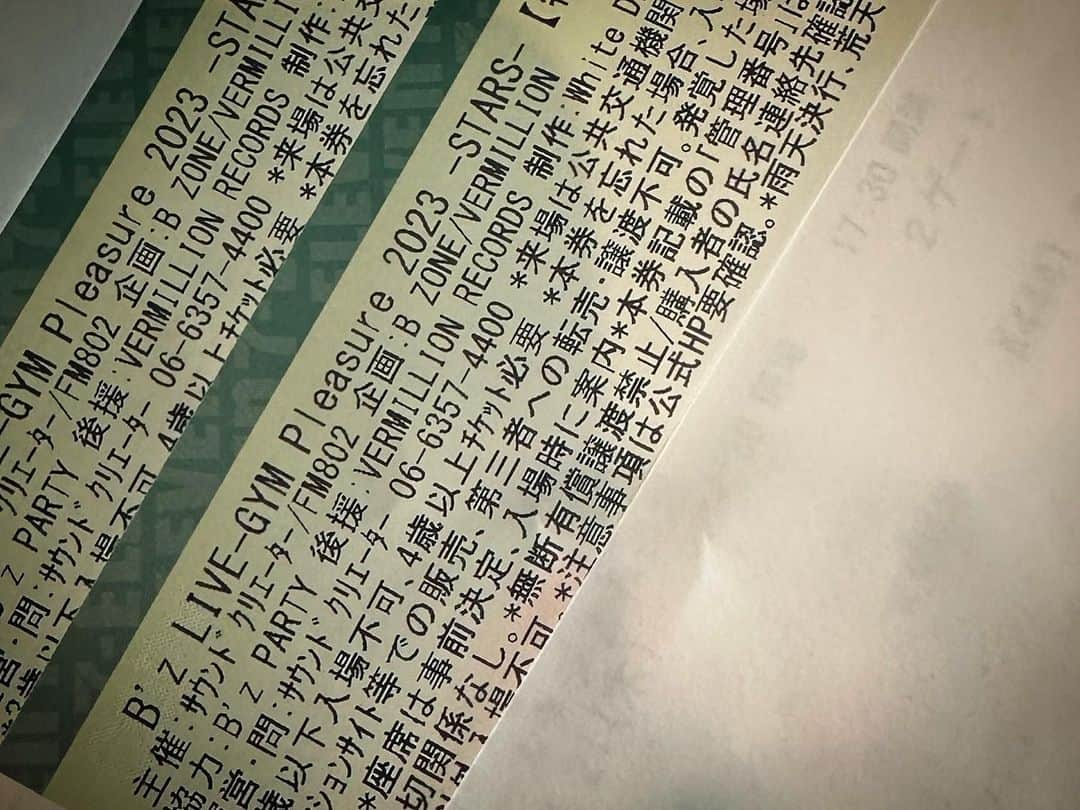 -GYM Pleasure 2023 -STA
ｸﾘｴｰﾀｰ/FM802 企画:B ZONE/VERMILL
z PARTY 後援:VERMILLION RECORDS 制作:
営・問:ｻｳﾝﾄﾞｸﾘｴｰﾀｰ 06-6357-4400 *来場は公共交
歳以下入場不可、4歳以上ﾁｹｯﾄ必要 *本券を忘れた
B'z LIVE-GYM Pleasure 2023 -STARS-
主催:ｻｳﾝﾄﾞｸﾘｴｰﾀｰ/FM802 企画:B ZONE/VERMILLION
協力:B'z PARTY 後援:VERMILLION RECORDS 制作:White D
運営・問:ｻｳﾝﾄﾞｸﾘｴｰﾀｰ 06-6357-4400 *来場は公共交通機関
歳以下入場不可、4歳以上ﾁｹｯﾄ必要 *本券を忘れた場合、入
ションサイト等での販売、第三者への転売・譲渡不可。発覚した場
*座席は事前決定、入場時に案内*本券記載の「管理番号」は
切関係なし。*無断有償譲渡禁止/購入者の氏名連絡先確認
場不可。*注意事項は公式HP要確認。*雨天決行、荒天
17:30
2ゲート